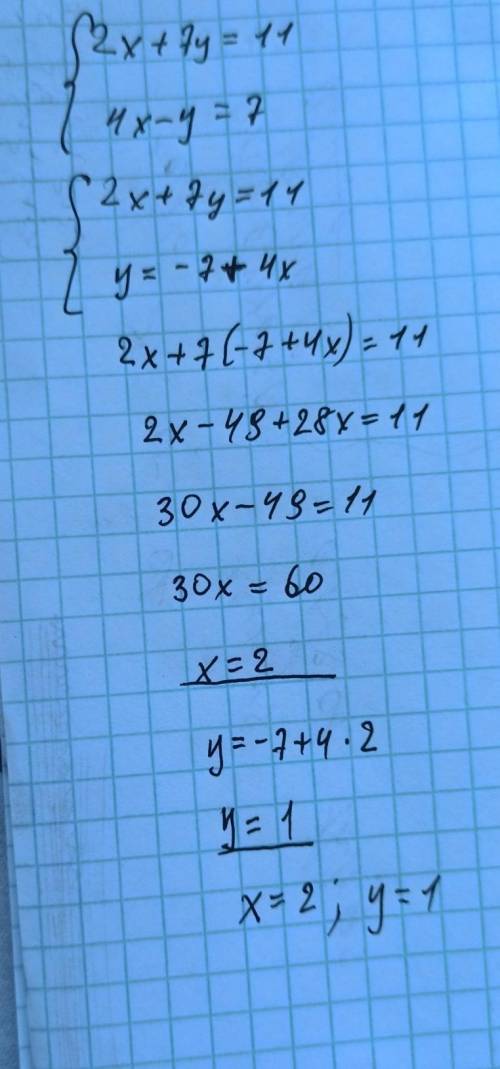 2x+7y=11
4x-y=7
2x+7y=11
y=-7+4x
2x+7(-7+4x)=11
2x-49+28x=11
30x-49=11
30x=60
x=2
y=-7+4·2
y=1
x=2; y=1